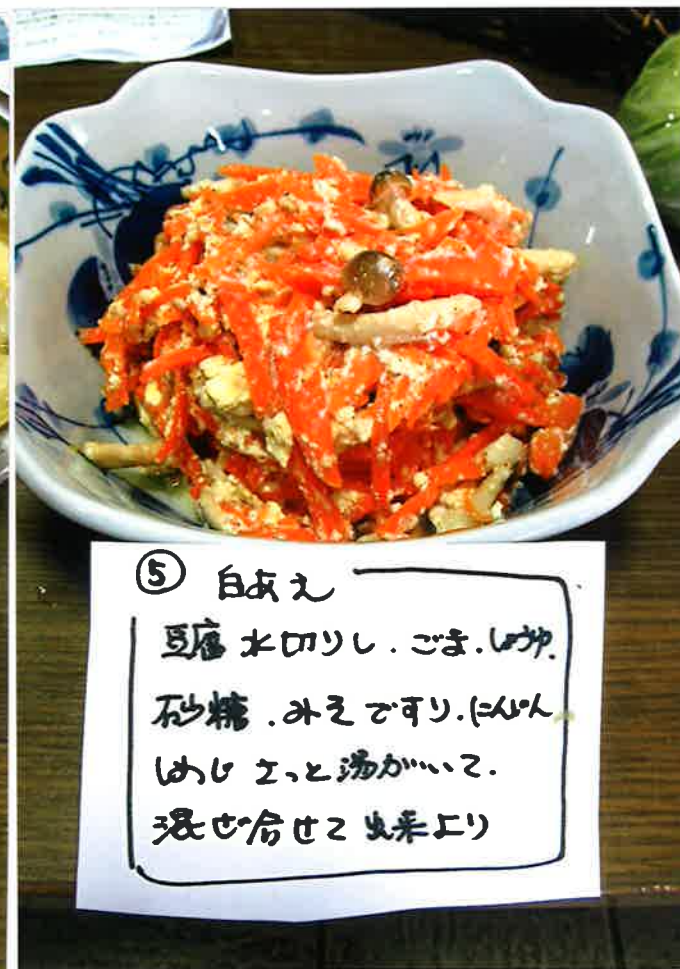 ⑤ 白あえ
豆腐 水切りし.ごま.しょうゆ.
砂糖.みそですり.にんじん
しめじ さっと湯がいて.
混ぜ合せて 出来上り